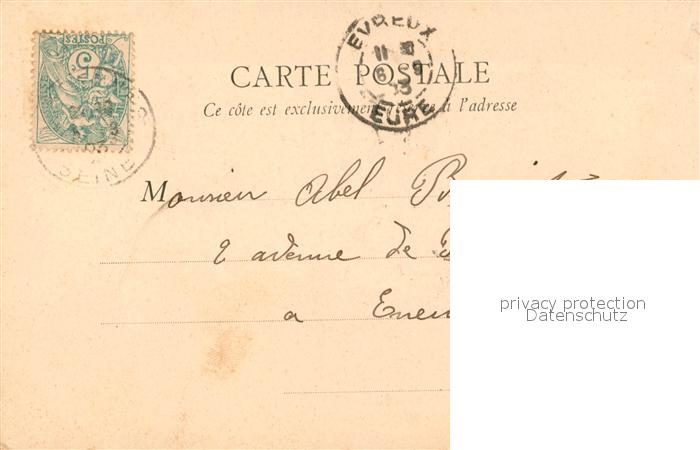 POSTES
5
SEINE
EVREUX
EURE
CARTE POSTALE
Ce côté est exclusivement à l'adresse
Monsieur Abel
2 avenue de
a
privacy protection
Datenschutz